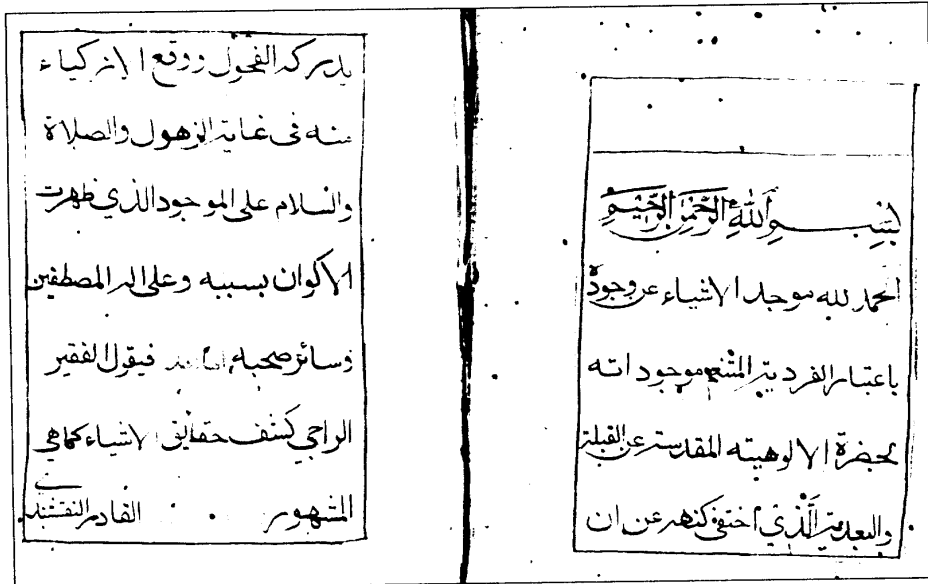 بسم الله الرحمن الرحيم
الحمد لله موجد الاشياء عن وجوده
باعتبار الفردية المتنعم موجوداته
بحضرة الالوهيته المقدسة عن القبلة
والبعدية الذي اختفى كنهه عن ان
يدركه الفحول ووقع الازكياء
منه في غاية الزهول والصلاة
والسلام على الموجود الذي ظهرت
الاكوان بسببه وعلى اله المصطفين
وسائر صحبه اما بعد فيقول الفقير
الراجي كشف حقايق الاشياء كما هي
المشهور القادري النقشبندي